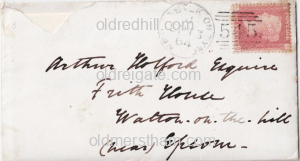 oldredhill.com
Arthur Holford Esquire
oldreigate.com
Frith House
Walton-on-the-hill
oldmerstham.com
(near) Epsom